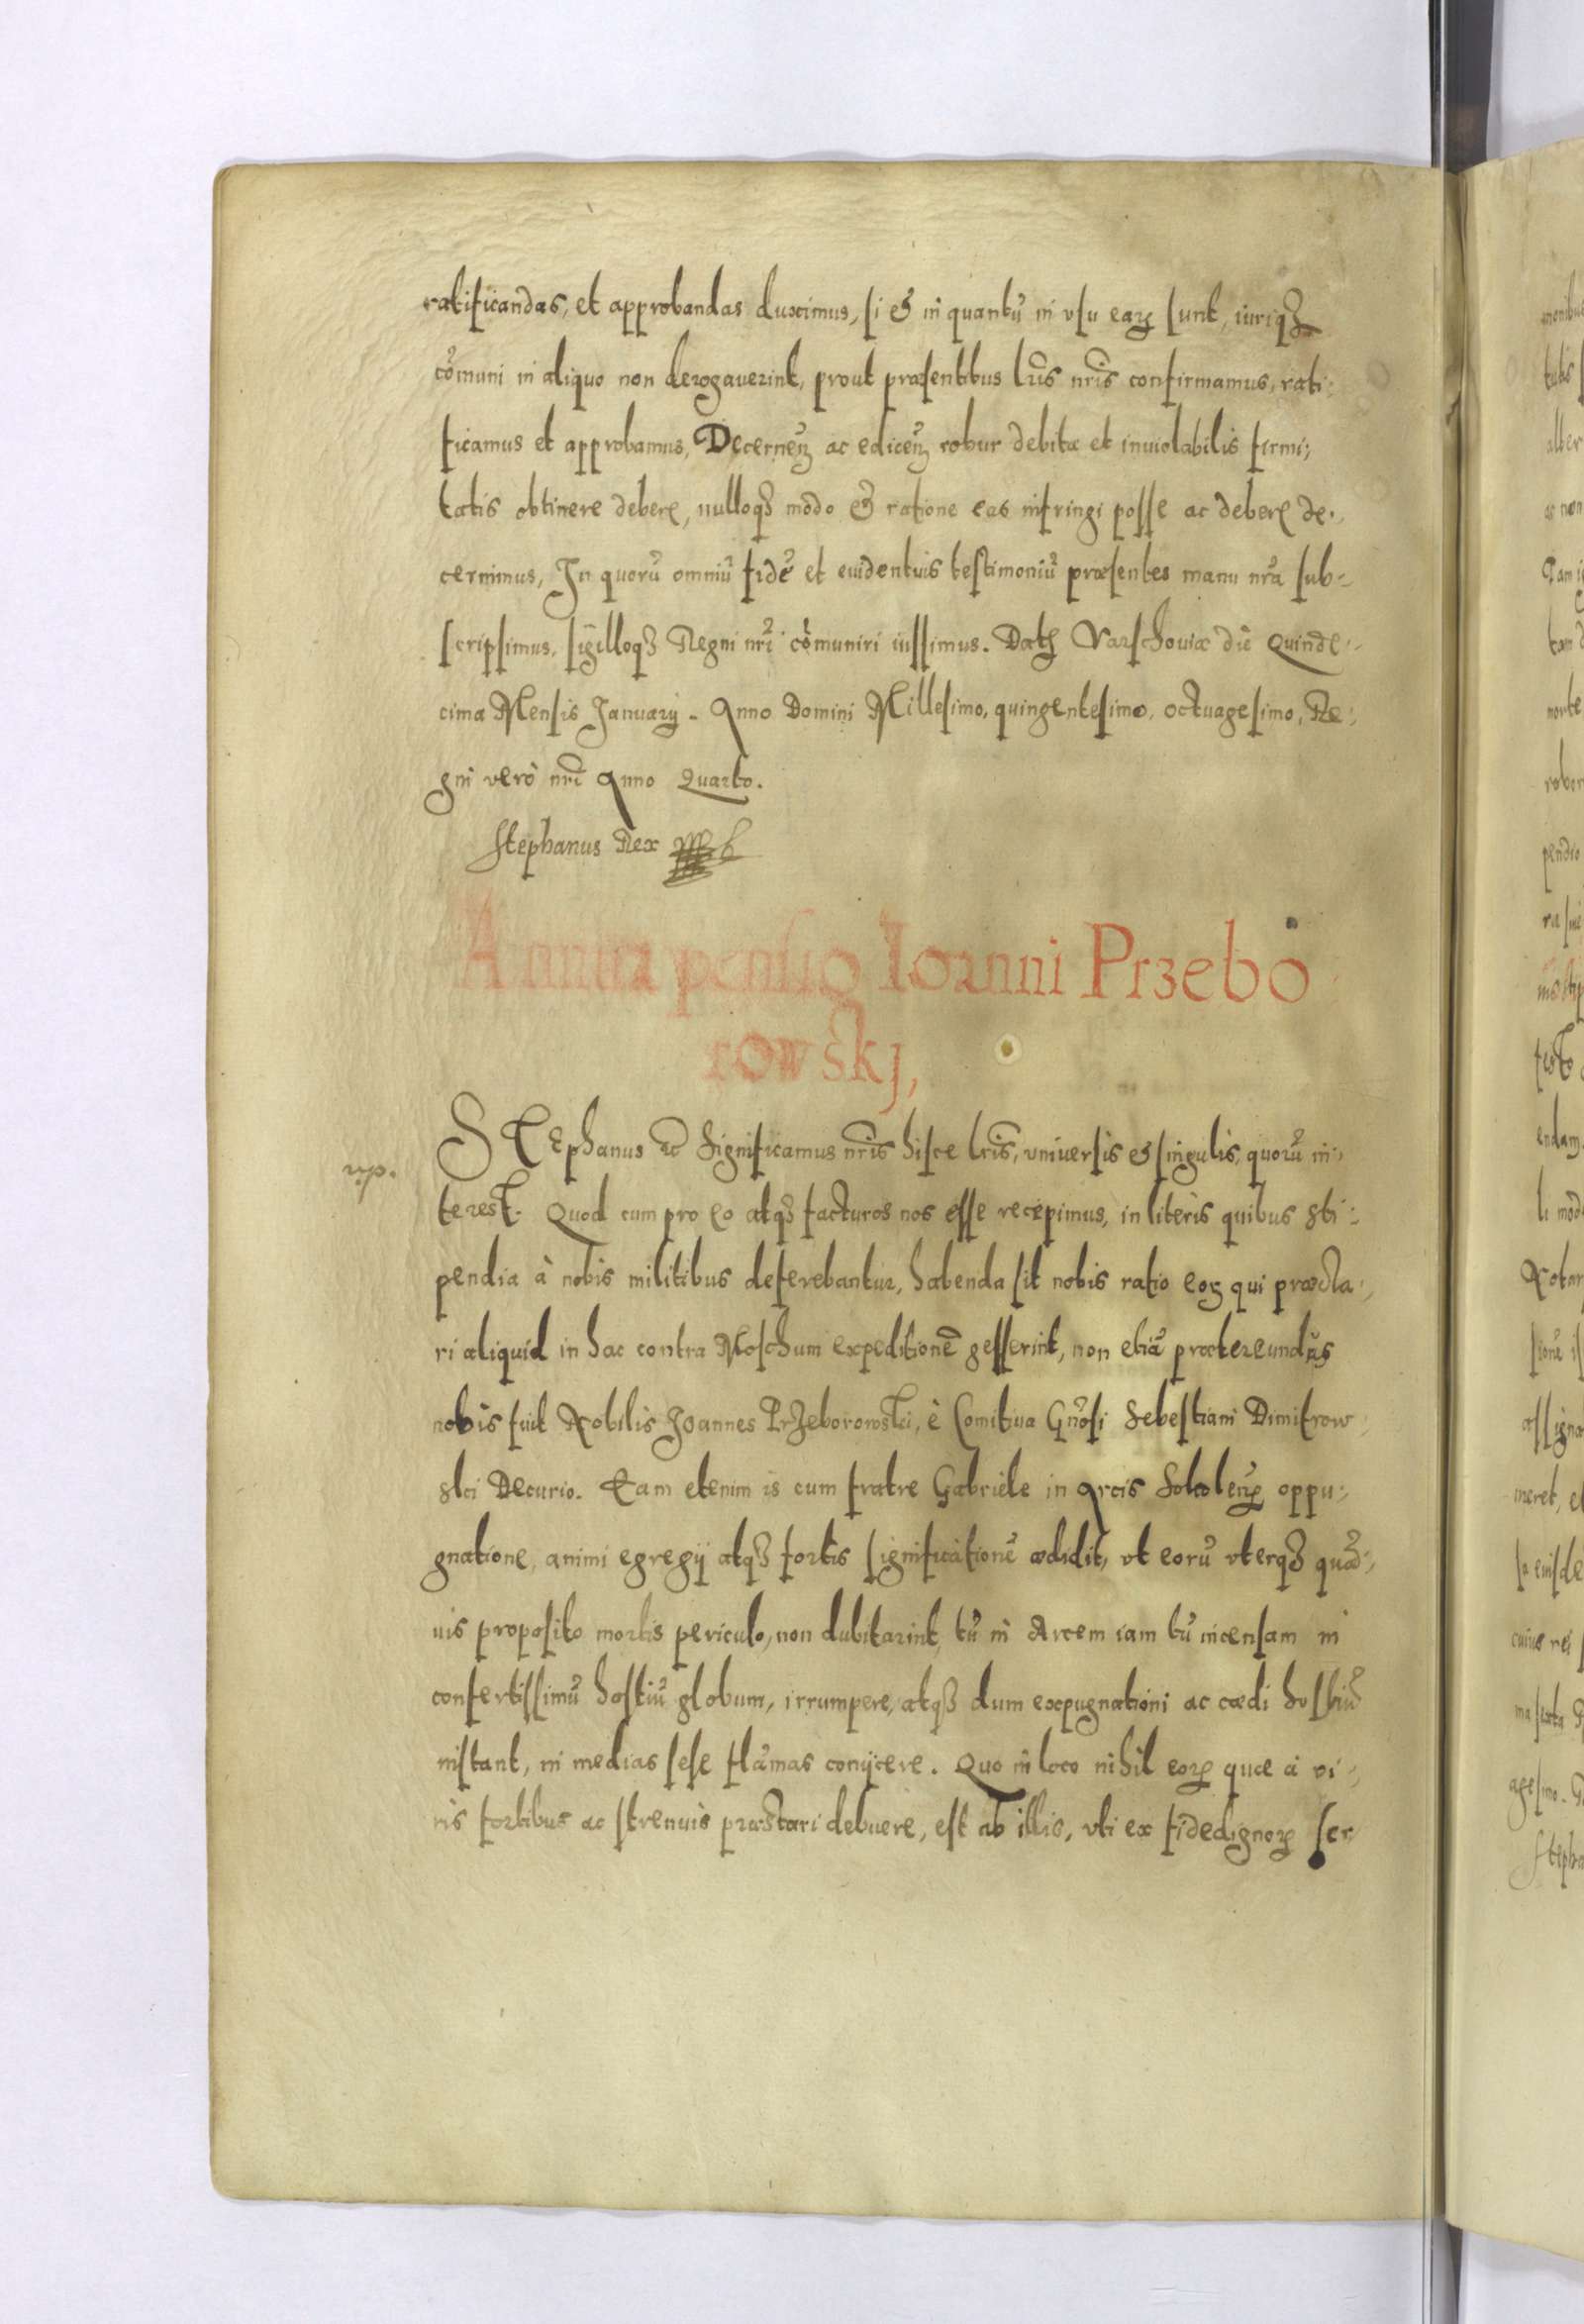 ratificandas, et approbandas duximus, si & in quantũ in vsu earꝝ sunt, iuriqꝫ
cõmuni in aliquo non derogauerint, prout præsentibus lr̃is nr̃is confirmamus, rati:
ficamus et approbamus, Decerneñ ac ediceñ robur debitæ et inuiolabilis firmi:
tatis obtinere debere, nulloqꝫ modo & ratione eas infringi posse ac debere de:
cernimus, In quorũ omniũ fidẽ et euidentius testimoniũ præsentes manu nr̃a sub:
scripsimus, sigilloqꝫ Regni nr̃i cõmuniri iussimus. Datꝭ Varschouiæ die Quinde:
cima Mensis Januarij. Anno Domini Millesimo, quingentesimo, octuagesimo, Re:
gni verò nr̃i Anno Quarto.
Stephanus Rex
Annua pensio Ioanni Przebo
rowskj,
STEphanus ꝛc Significamus nr̃is hisce lr̃is, vniuersis & singulis, quorũ in:
terest. Quod cum pro eo atqꝫ facturos nos esse recepimus, in literis quibus sti:
pendia à nobis militibus deferebantur, habenda sit nobis ratio eoꝝ qui præcla:
ri aliquid in hac contra Moschum expeditionẽ gesserint, non etiã prætereundus
nobis fuit Nobilis Joannes Przeborowski, è Comitiua Gñosi Sebestiani Dimitrow
ski Decurio. Eam etenim is cum fratre Gabriele in Arcis Sokoleñ oppu:
gnatione, animi egregij atqꝫ fortis significationẽ ædidit, vt eorũ vterqꝫ quã:
uis proposito mortis periculo, non dubitarint, tũ in Arcem iam tũ incensam in
confertissimũ hostiũ globum, irrumpere, atqꝫ dum expugnationi ac cædi hostiũ
instant, in medias sese flãmas conijcere. Quo in loco nihil eorꝝ quæ à vi:
ris fortibus ac strenuis præstari debuere, est ab illis, vti ex fidedignorꝝ ser